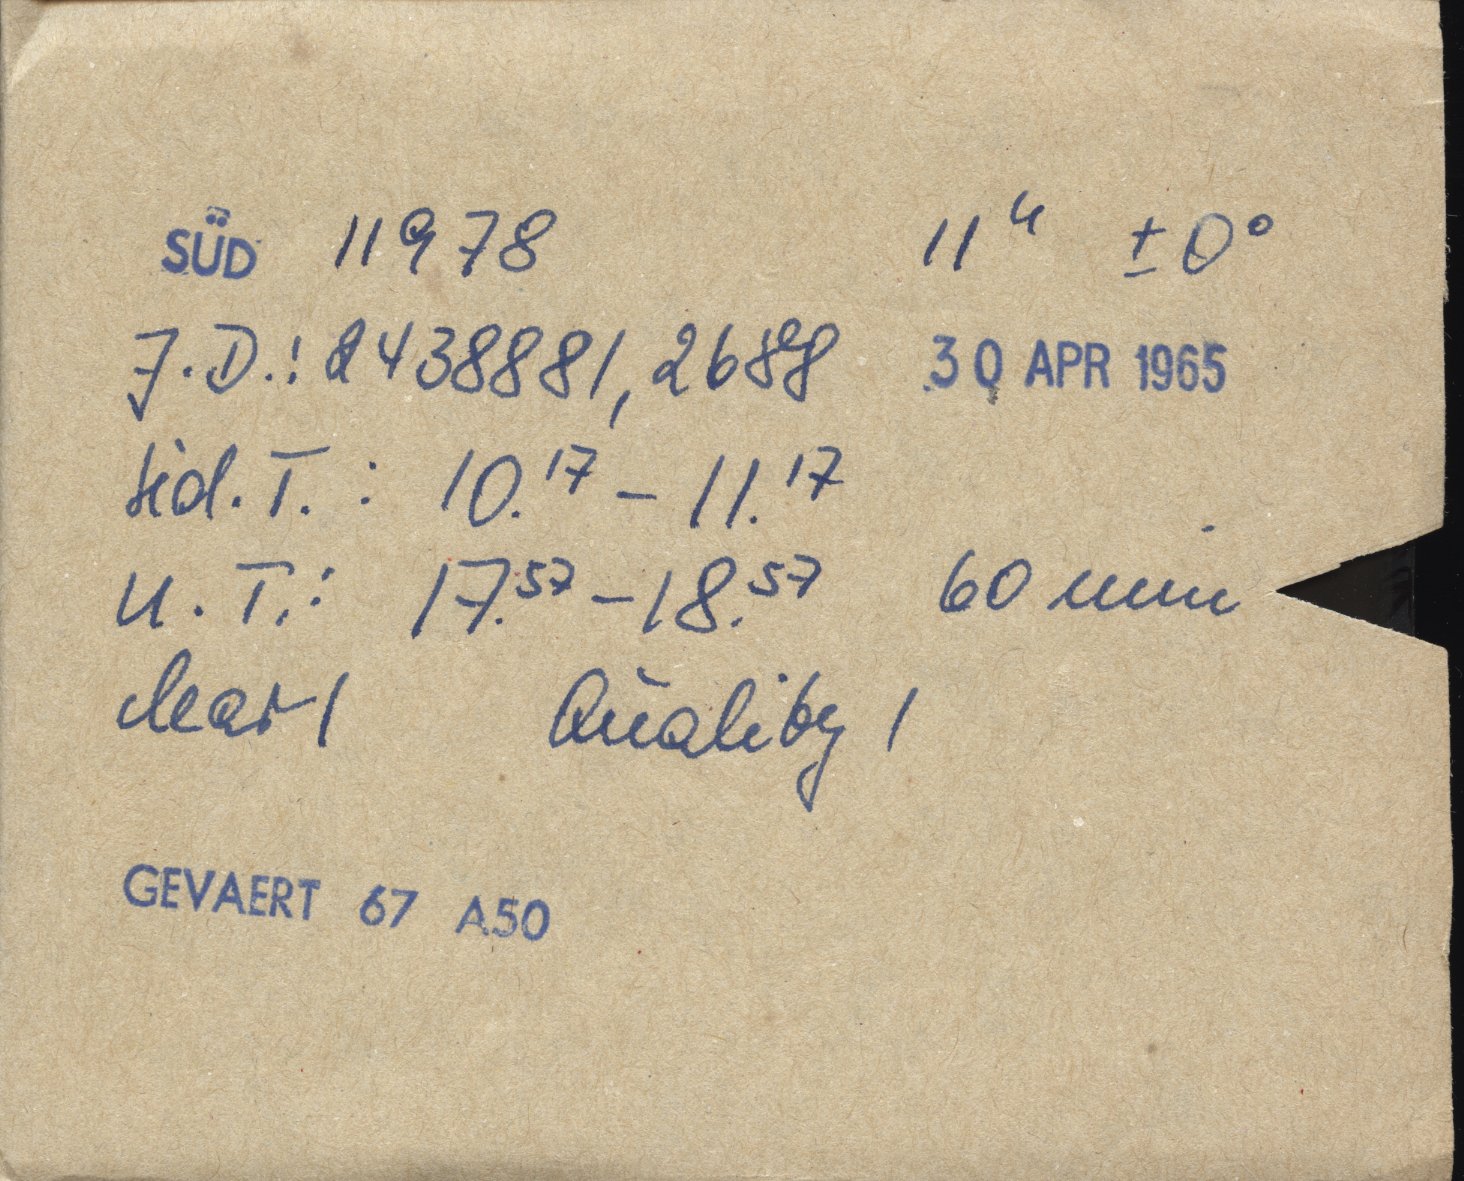 SÜD 11978 11ʰ ±0°
J.D.: 2438881,2688 30 APR 1965
Sid. T. : 10.¹⁷ – 11.¹⁷
U. T.: 17.⁵⁷ – 18.⁵⁷ 60 min
clear 1 Quality 1
GEVAERT 67 A50